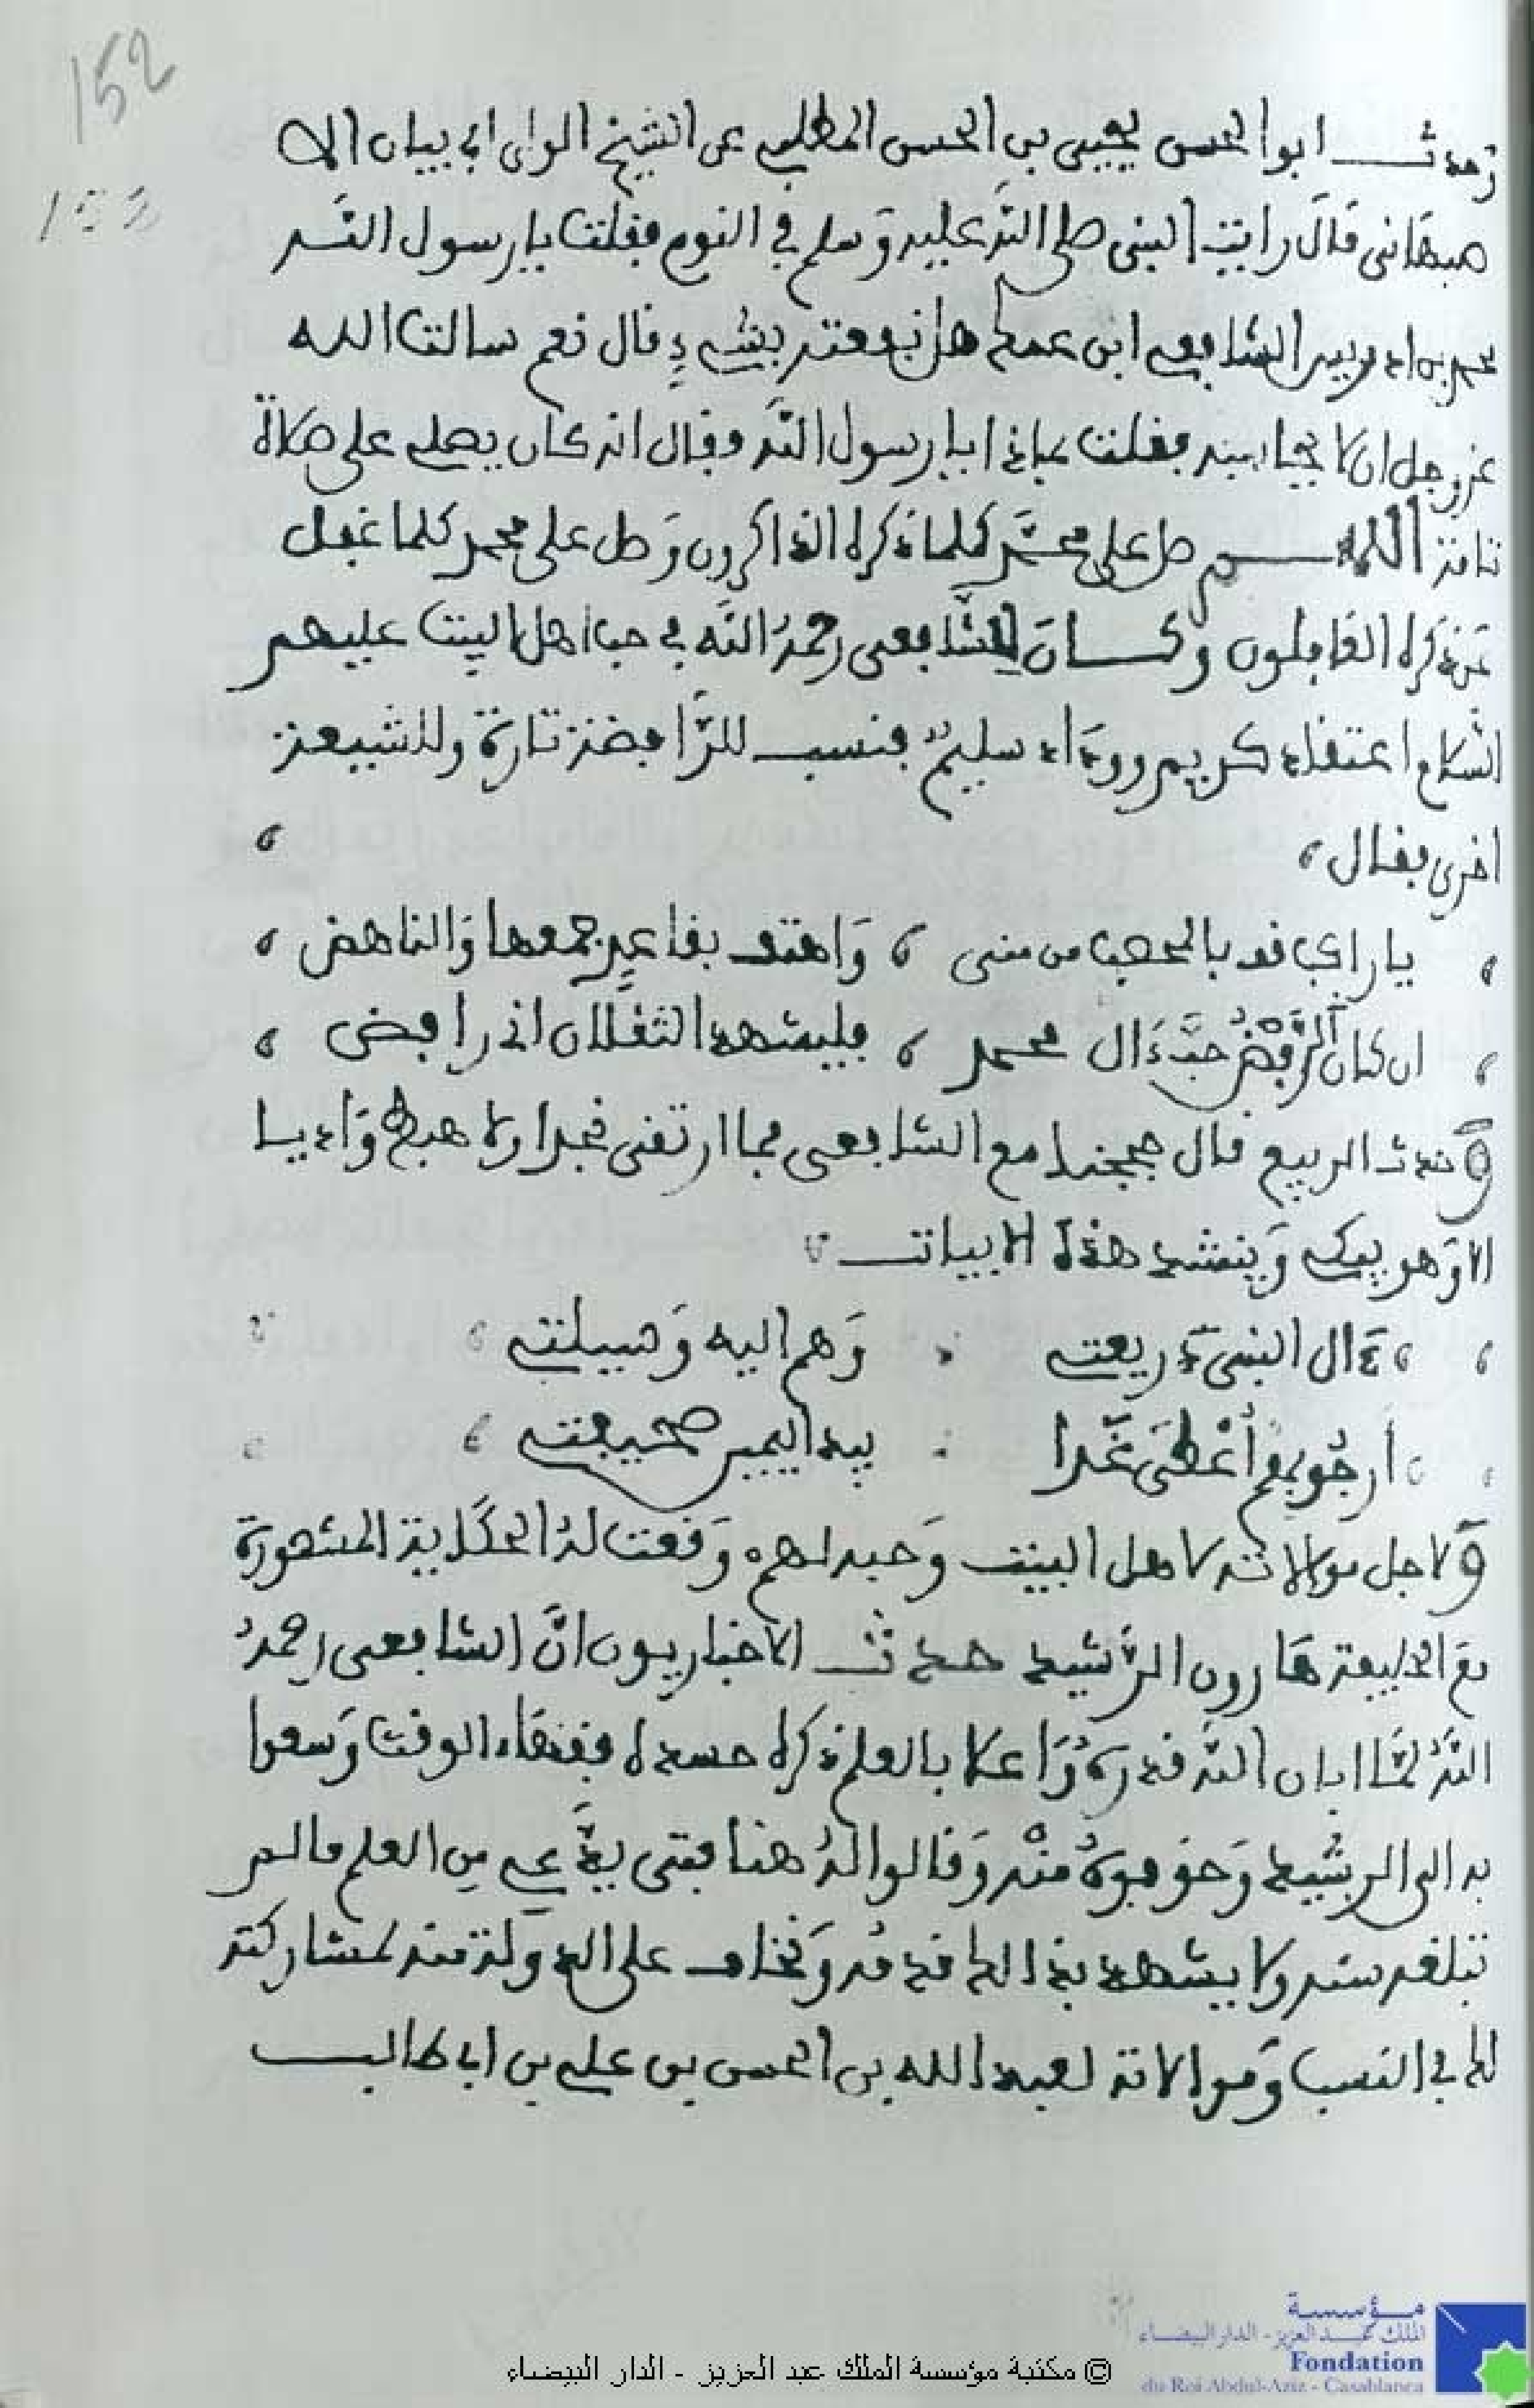 152
153
وحدث ابو الحسن يحيى بن الحسن المطلبي عن الشيخ الولي ابي بيان الا
صبهاني قال رايت النبي صلى الله عليه وسلم في النوم فقلت يا رسول الله
محمد بن ادريس الشافعي ابن عمك هل نفعته بشيء قال نعم سالت الله
عز وجل ان لا يحاسبه فقلت بماذا يا رسول الله فقال انه كان يصلي علي صلاة
تامة اللهم صل على محمد كلما ذكره الذاكرون وصل على محمد كلما غفل
عن ذكره الغافلون وكان للشافعي رحمه الله في حب اهل البيت عليهم
السلام اعتقاد كريم ووداد سليم فنسب للرافضة تارة وللشيعة
اخرى فقال ،
، يا راكبا قف بالمحصب من منى ، واهتف بقاعد جمعها والناهض ،
، ان كان الرفض حب ءال محمد ، فليشهد الثقلان اني رافضي ،
وحدث الربيع قال حججنا مع الشافعي فما ارتقى فجدا ولا هبط واديا
الا وهو يبكي وينشد هذه الابيات
، ، ءال النبي ذريعتي وهم اليه وسيلتي ،
، ارجو بهم أعطى غدا بيد اليمين صحيفتي ،
ولاجل موالاته لاهل البيت وحبه لهم وقعت له الحكاية المشهورة
مع الخليفة هارون الرشيد حدث الاخباريون ان الشافعي رحمه
الله لما ابان الله قدره واعلا بالعلم ذكره حسده فقهاء الوقت وسعوا
به الى الرشيد وخوفوه منه وقالوا له هنا فتى يدعي من العلم ما لم
تبلغه سنه ولا يشهد بذالك قدمه ونخاف على الدولة منه لمشاركته
لك في النسب وموالاته لعبد الله بن الحسن بن علي بن ابي طالب
مؤسسة
الملك عبد العزيز - الدار البيضاء
Fondation
du Roi Abdul-Aziz - Casablanca
© مكتبة مؤسسة الملك عبد العزيز - الدار البيضاء